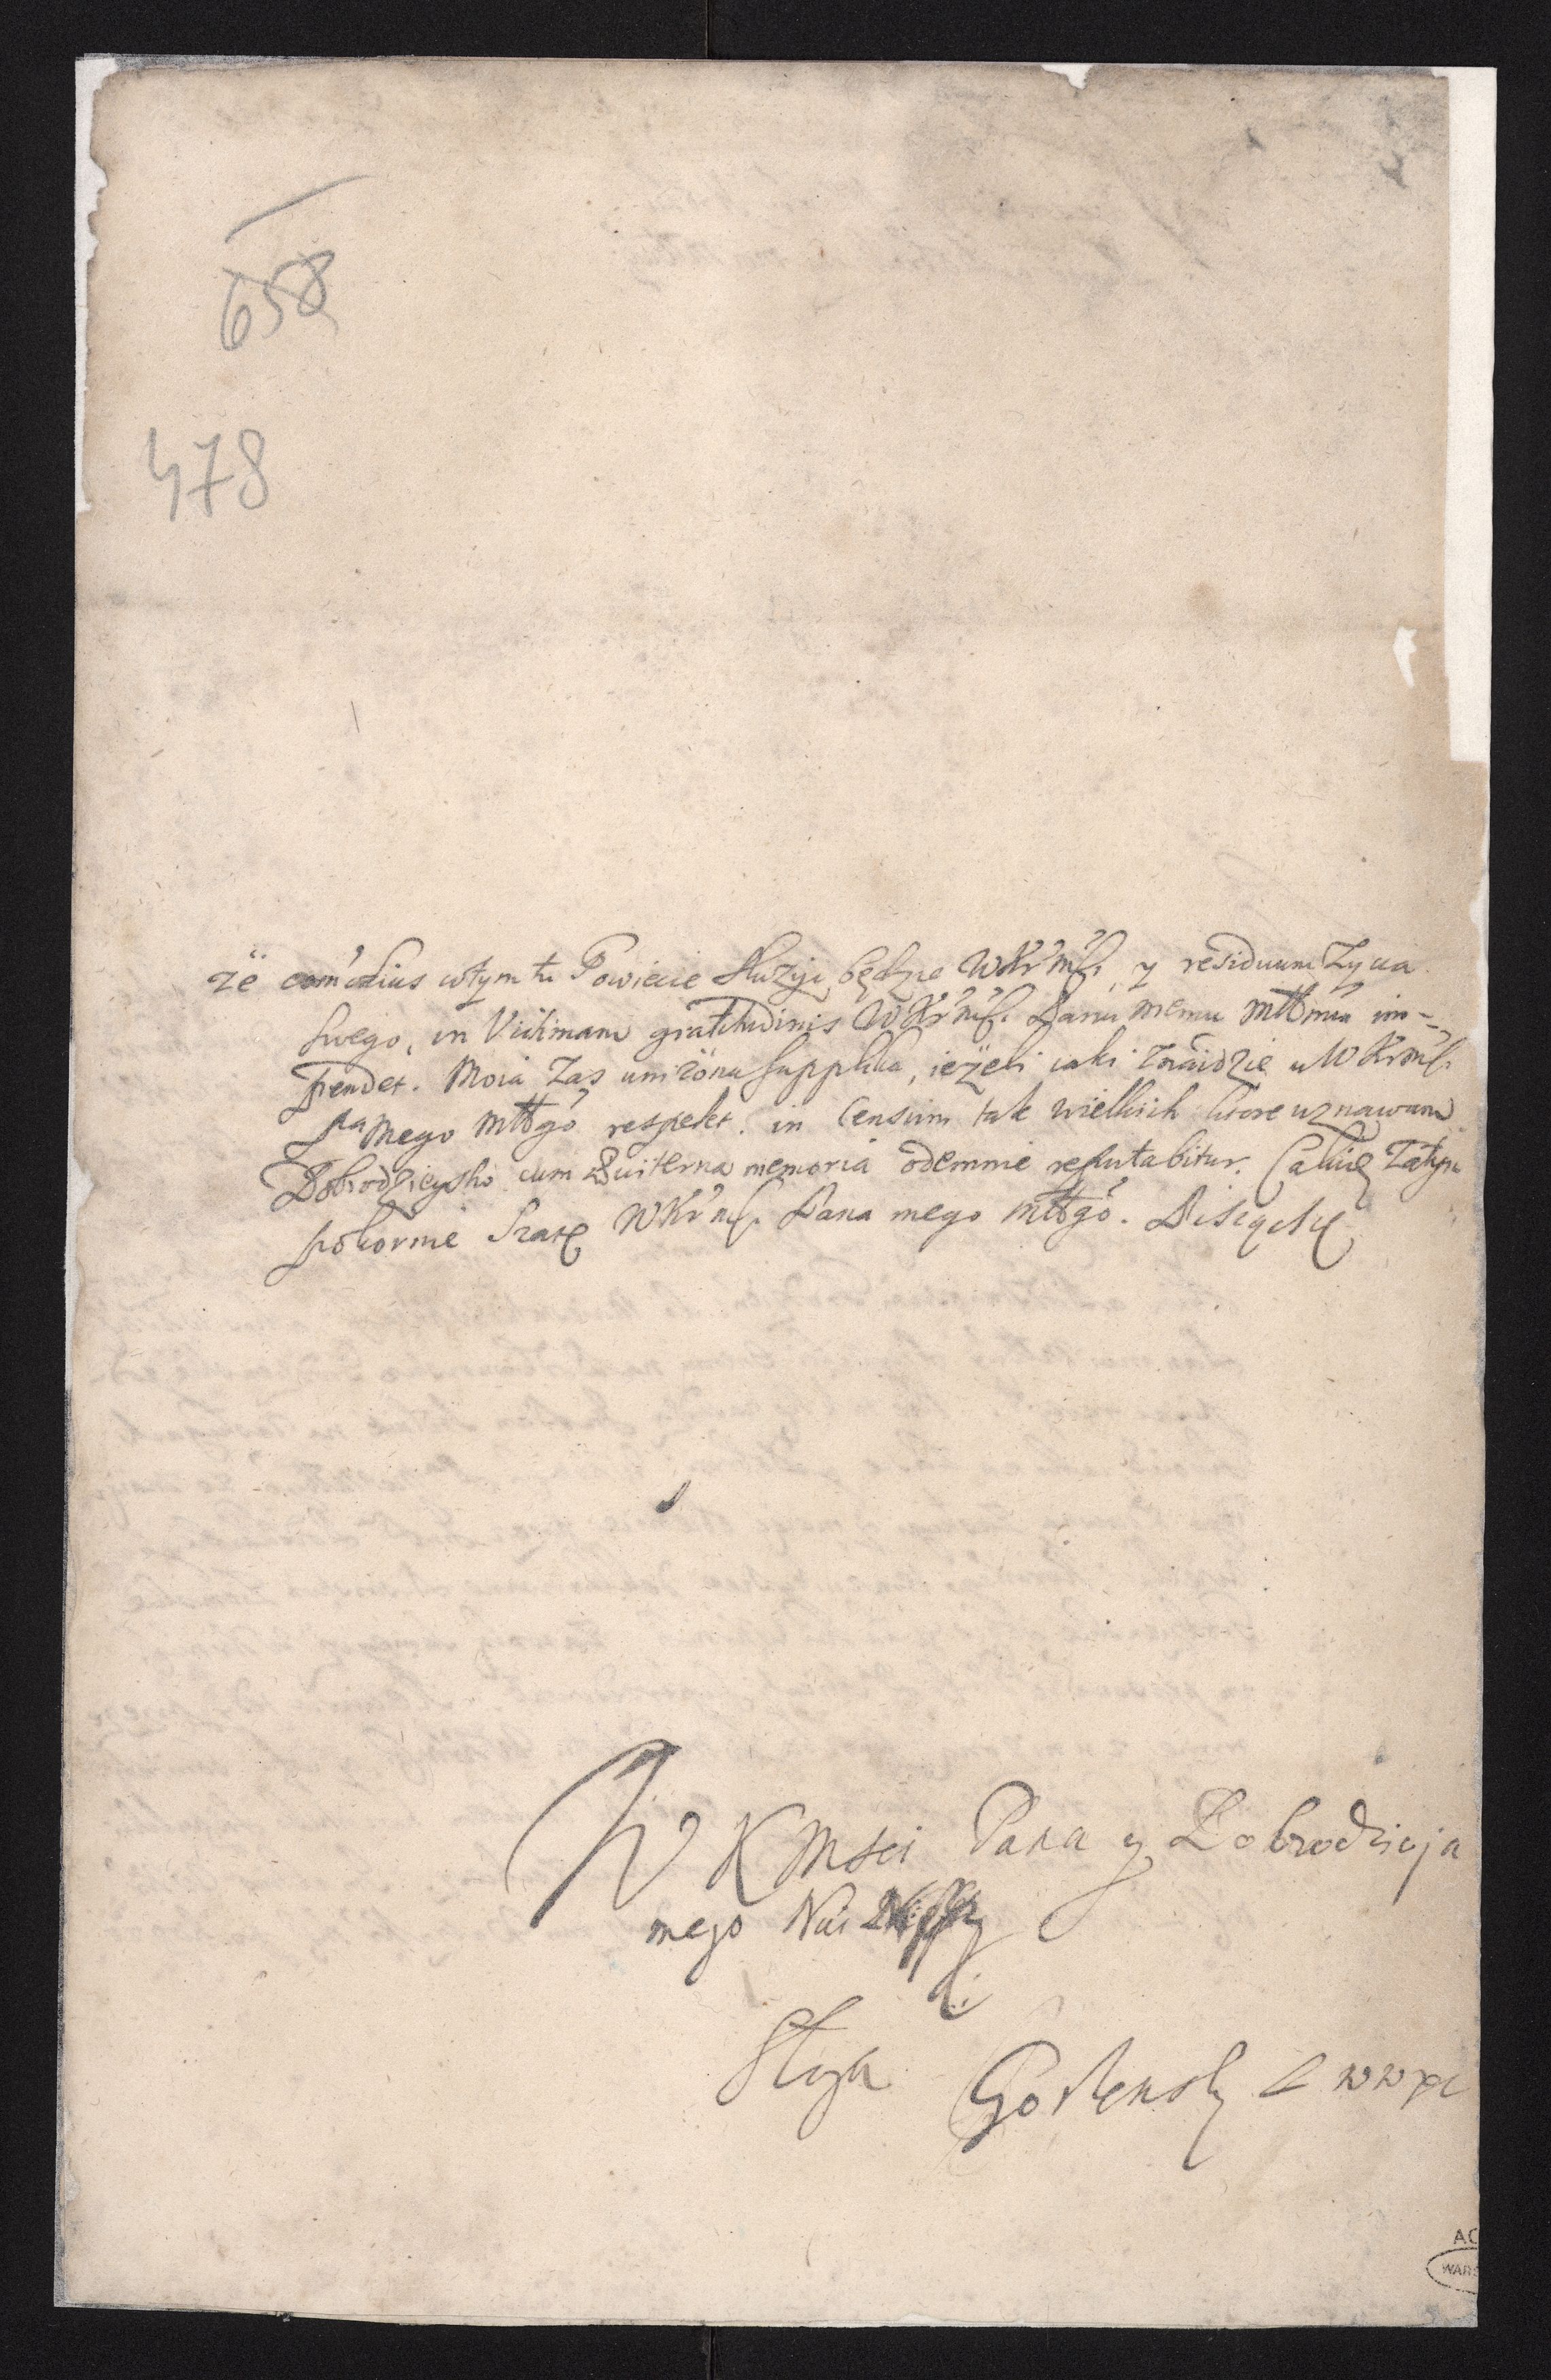 658
478
że com̃odius wtym tu Powiecie służyć będzie WKr̃mśc̃i, y residuum Zycia
swego, in Victimam gratitudinis WKr̃mśc̃i Panu memu młtt̃mu im-
pendet. Moia Zas uniżona supplika, ieżeli iaki znaidzie u WKr̃mśc̃i
Pa Mego młtt̃go respekt. in Censum tak wielkich ktore uznawam
Dobrodzieystw cum æviterna memoria odemnie reputabitur. Całuię Zatym
pokornie Szatę WKr̃mśc̃i Pana mego młtt̃go. Piszę się
WKMsci Pana y Dobrodzieja
mego
Sługa
AC
WARS